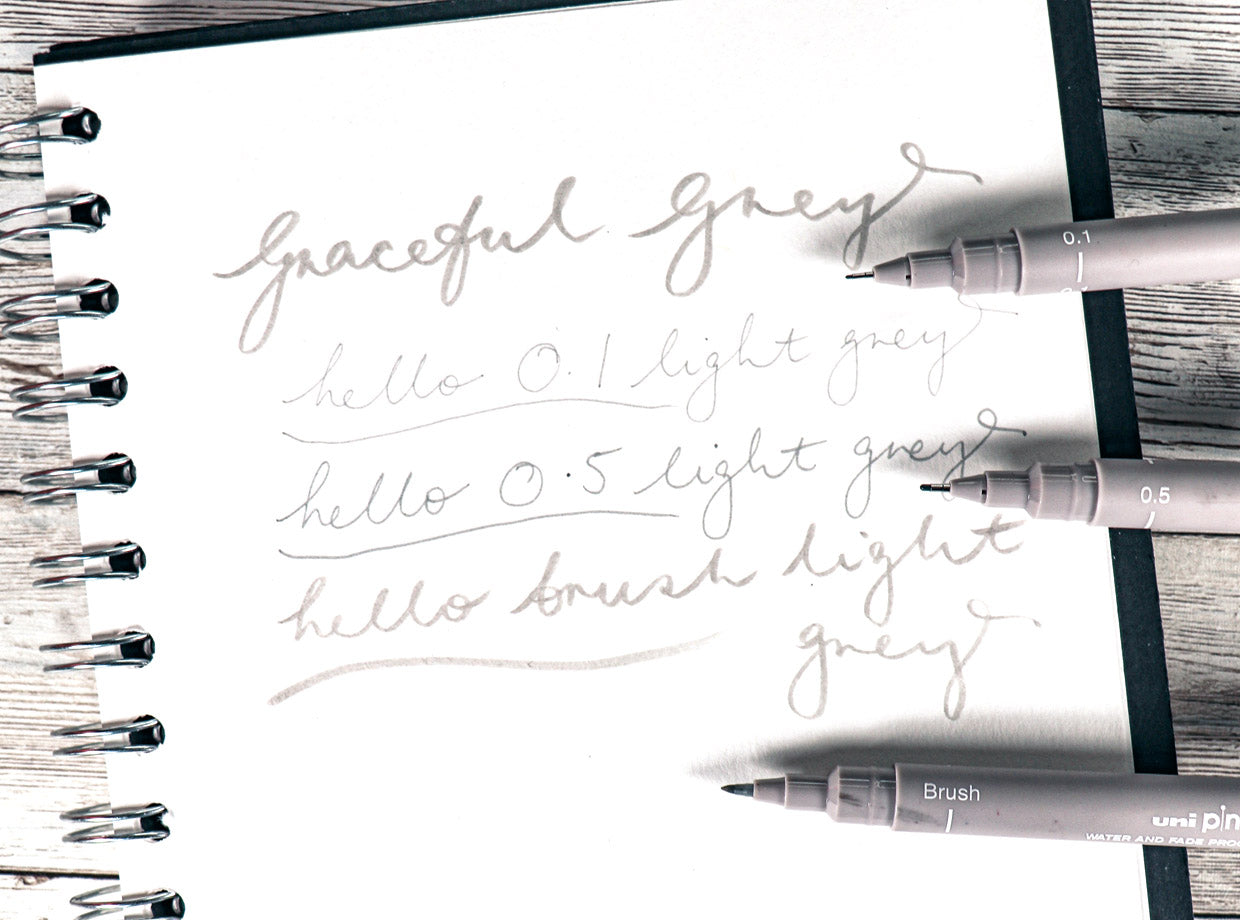 Graceful Grey
0.1
hello 0.1 light grey
hello 0.5 light grey
0.5
hello brush light
grey
Brush
uni pin
WATER AND FADE PROO